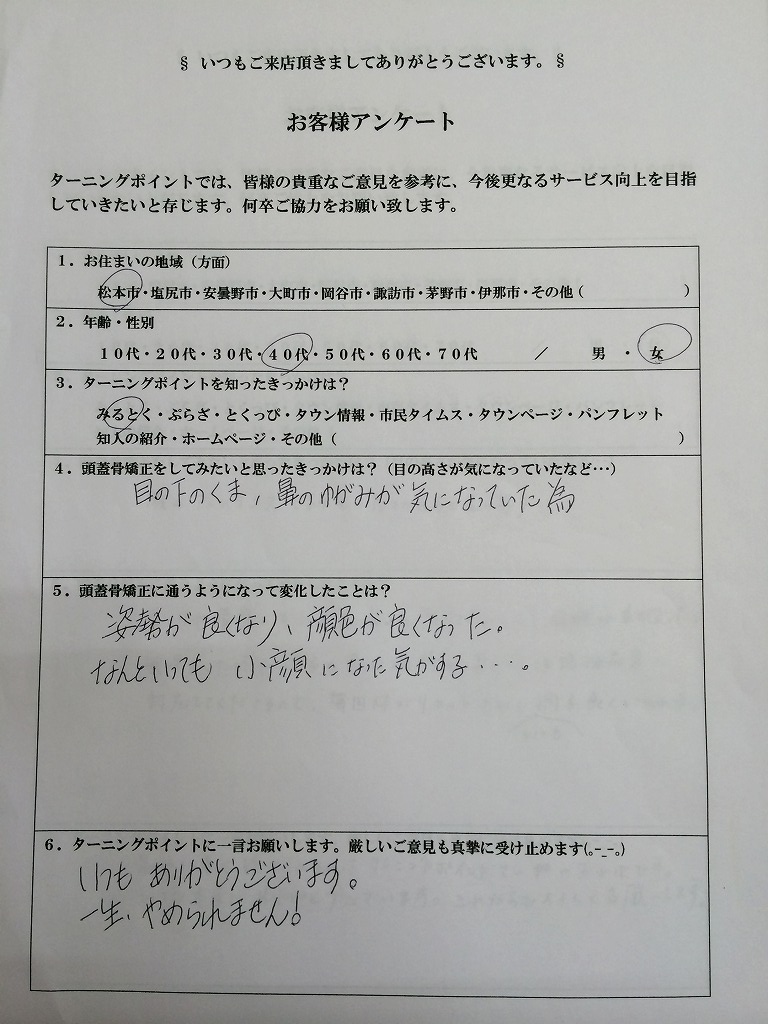 § いつもご来店頂きましてありがとうございます。§
お客様アンケート
ターニングポイントでは、皆様の貴重なご意見を参考に、今後更なるサービス向上を目指
していきたいと存じます。何卒ご協力をお願い致します。
１．お住まいの地域（方面）
松本市・塩尻市・安曇野市・大町市・岡谷市・諏訪市・茅野市・伊那市・その他（　　　　　　）
２．年齢・性別
１０代・２０代・３０代・４０代・５０代・６０代・７０代　　／　　男　・　女
３．ターニングポイントを知ったきっかけは？
みるとく・ぷらざ・とくっぴ・タウン情報・市民タイムス・タウンページ・パンフレット
知人の紹介・ホームページ・その他（　　　　　　）
４．頭蓋骨矯正をしてみたいと思ったきっかけは？（目の高さが気になっていたなど…）
目の下のくま，鼻のゆがみが気になっていた為
５．頭蓋骨矯正に通うようになって変化したことは？
姿勢が良くなり、顔色が良くなった。
なんといっても小顔になった気がする・・・。
６．ターニングポイントに一言お願いします。厳しいご意見も真摯に受け止めます(｡-_-｡)
いつもありがとうございます。
一生、やめられません！